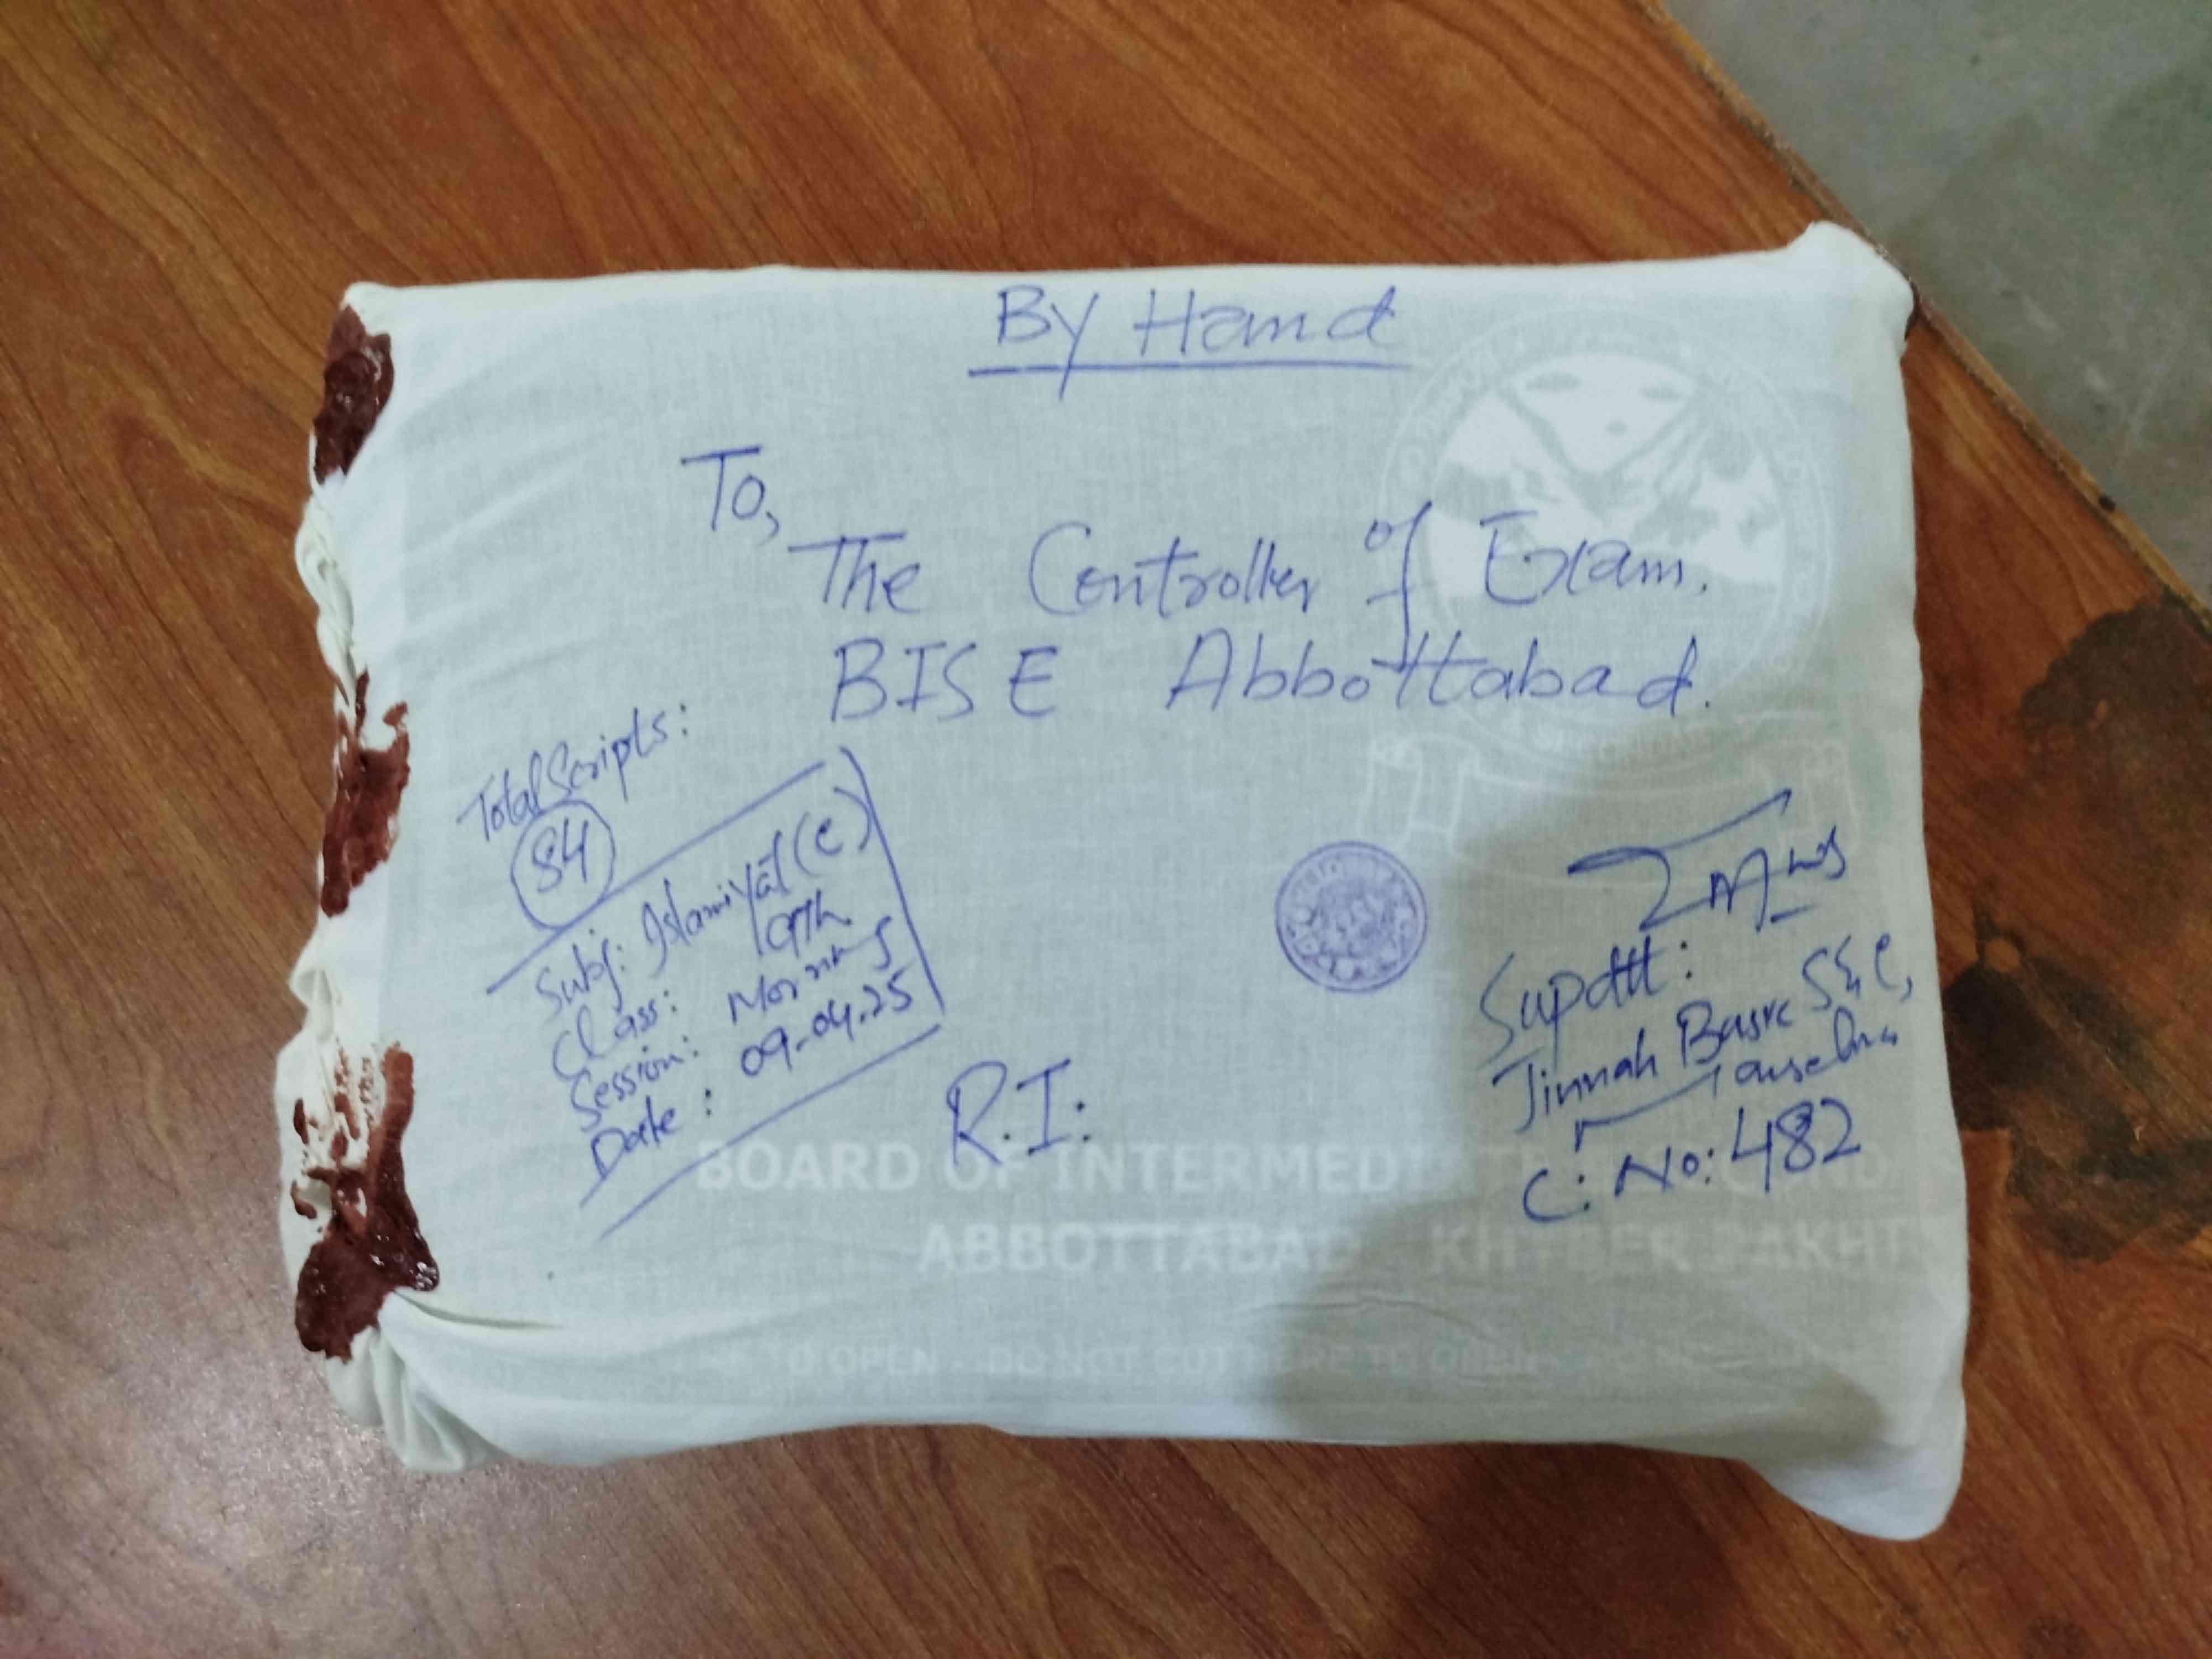 By Hand
To,
The Controller of Exam.
BISE Abbottabad.
Total Scripts:
84
Subj: Islamiyat (C)
Class: 10th
Session: Morning
Date: 09-04-25
R.I:
Supdtt:
Jinnah Basic
C: No: 482
BOARD OF INTERMEDIATE
ABBOTTABAD KHYBER PAKHT
O OPEN - DO NOT CUT HERE TO OPEN